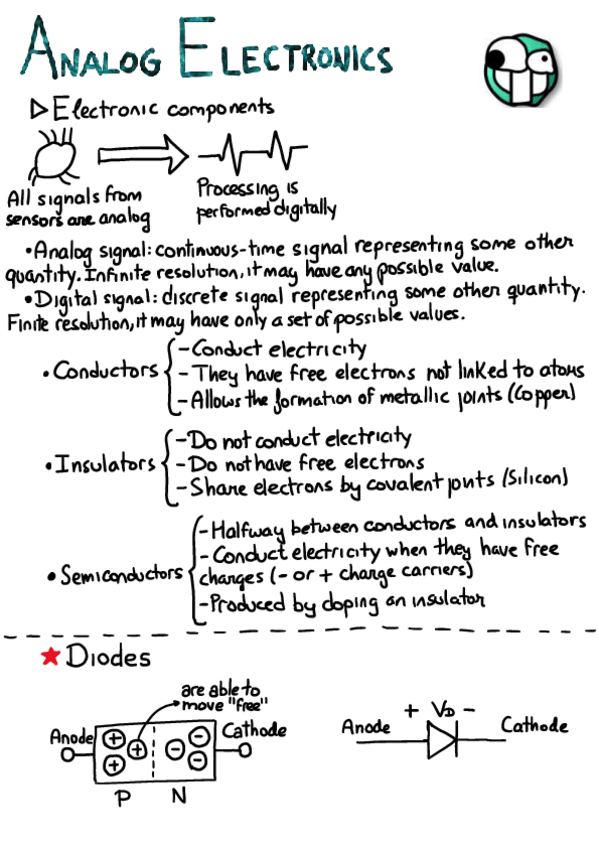 ANALOG ELECTRONICS
▷Electronic components
All signals from
sensors are analog
Processing is
performed digitally
•Analog signal: continuous-time signal representing some other
quantity. Infinite resolution, it may have any possible value.
•Digital signal: discrete signal representing some other quantity.
Finite resolution, it may have only a set of possible values.
•Conductors
-Conduct electricity
-They have free electrons not linked to atoms
-Allows the formation of metallic joints (Copper)
•Insulators
-Do not conduct electricity
-Do not have free electrons
-Share electrons by covalent joints (Silicon)
•Semiconductors
-Halfway between conductors and insulators
-Conduct electricity when they have free
charges (- or + charge carriers)
-Produced by doping an insulator
★Diodes
are able to
move "free"
Anode
Cathode
+ + +
- - -
P N
+ VD -
Anode
Cathode